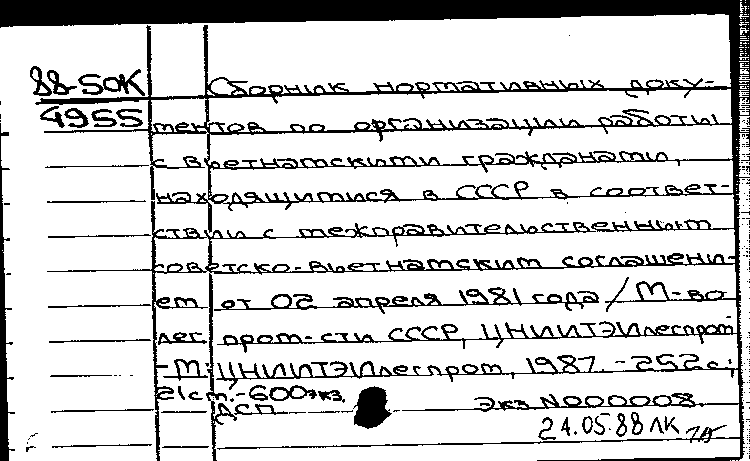 88-50К
4955
Сборник нормативных доку-
ментов по организации работы
с вьетнамскими гражданами,
находящимися в СССР в соответ-
ствии с межправительственным
советско-вьетнамским соглашени-
ем от 02 апреля 1981 года / М-во
лег. пром-сти СССР, ЦНИИТЭИлегпром
-М: ЦНИИТЭИлегпром, 1987. -252с;
21см. -600экз.
ДСП
Экз N000008.
24.05.88 ЛК